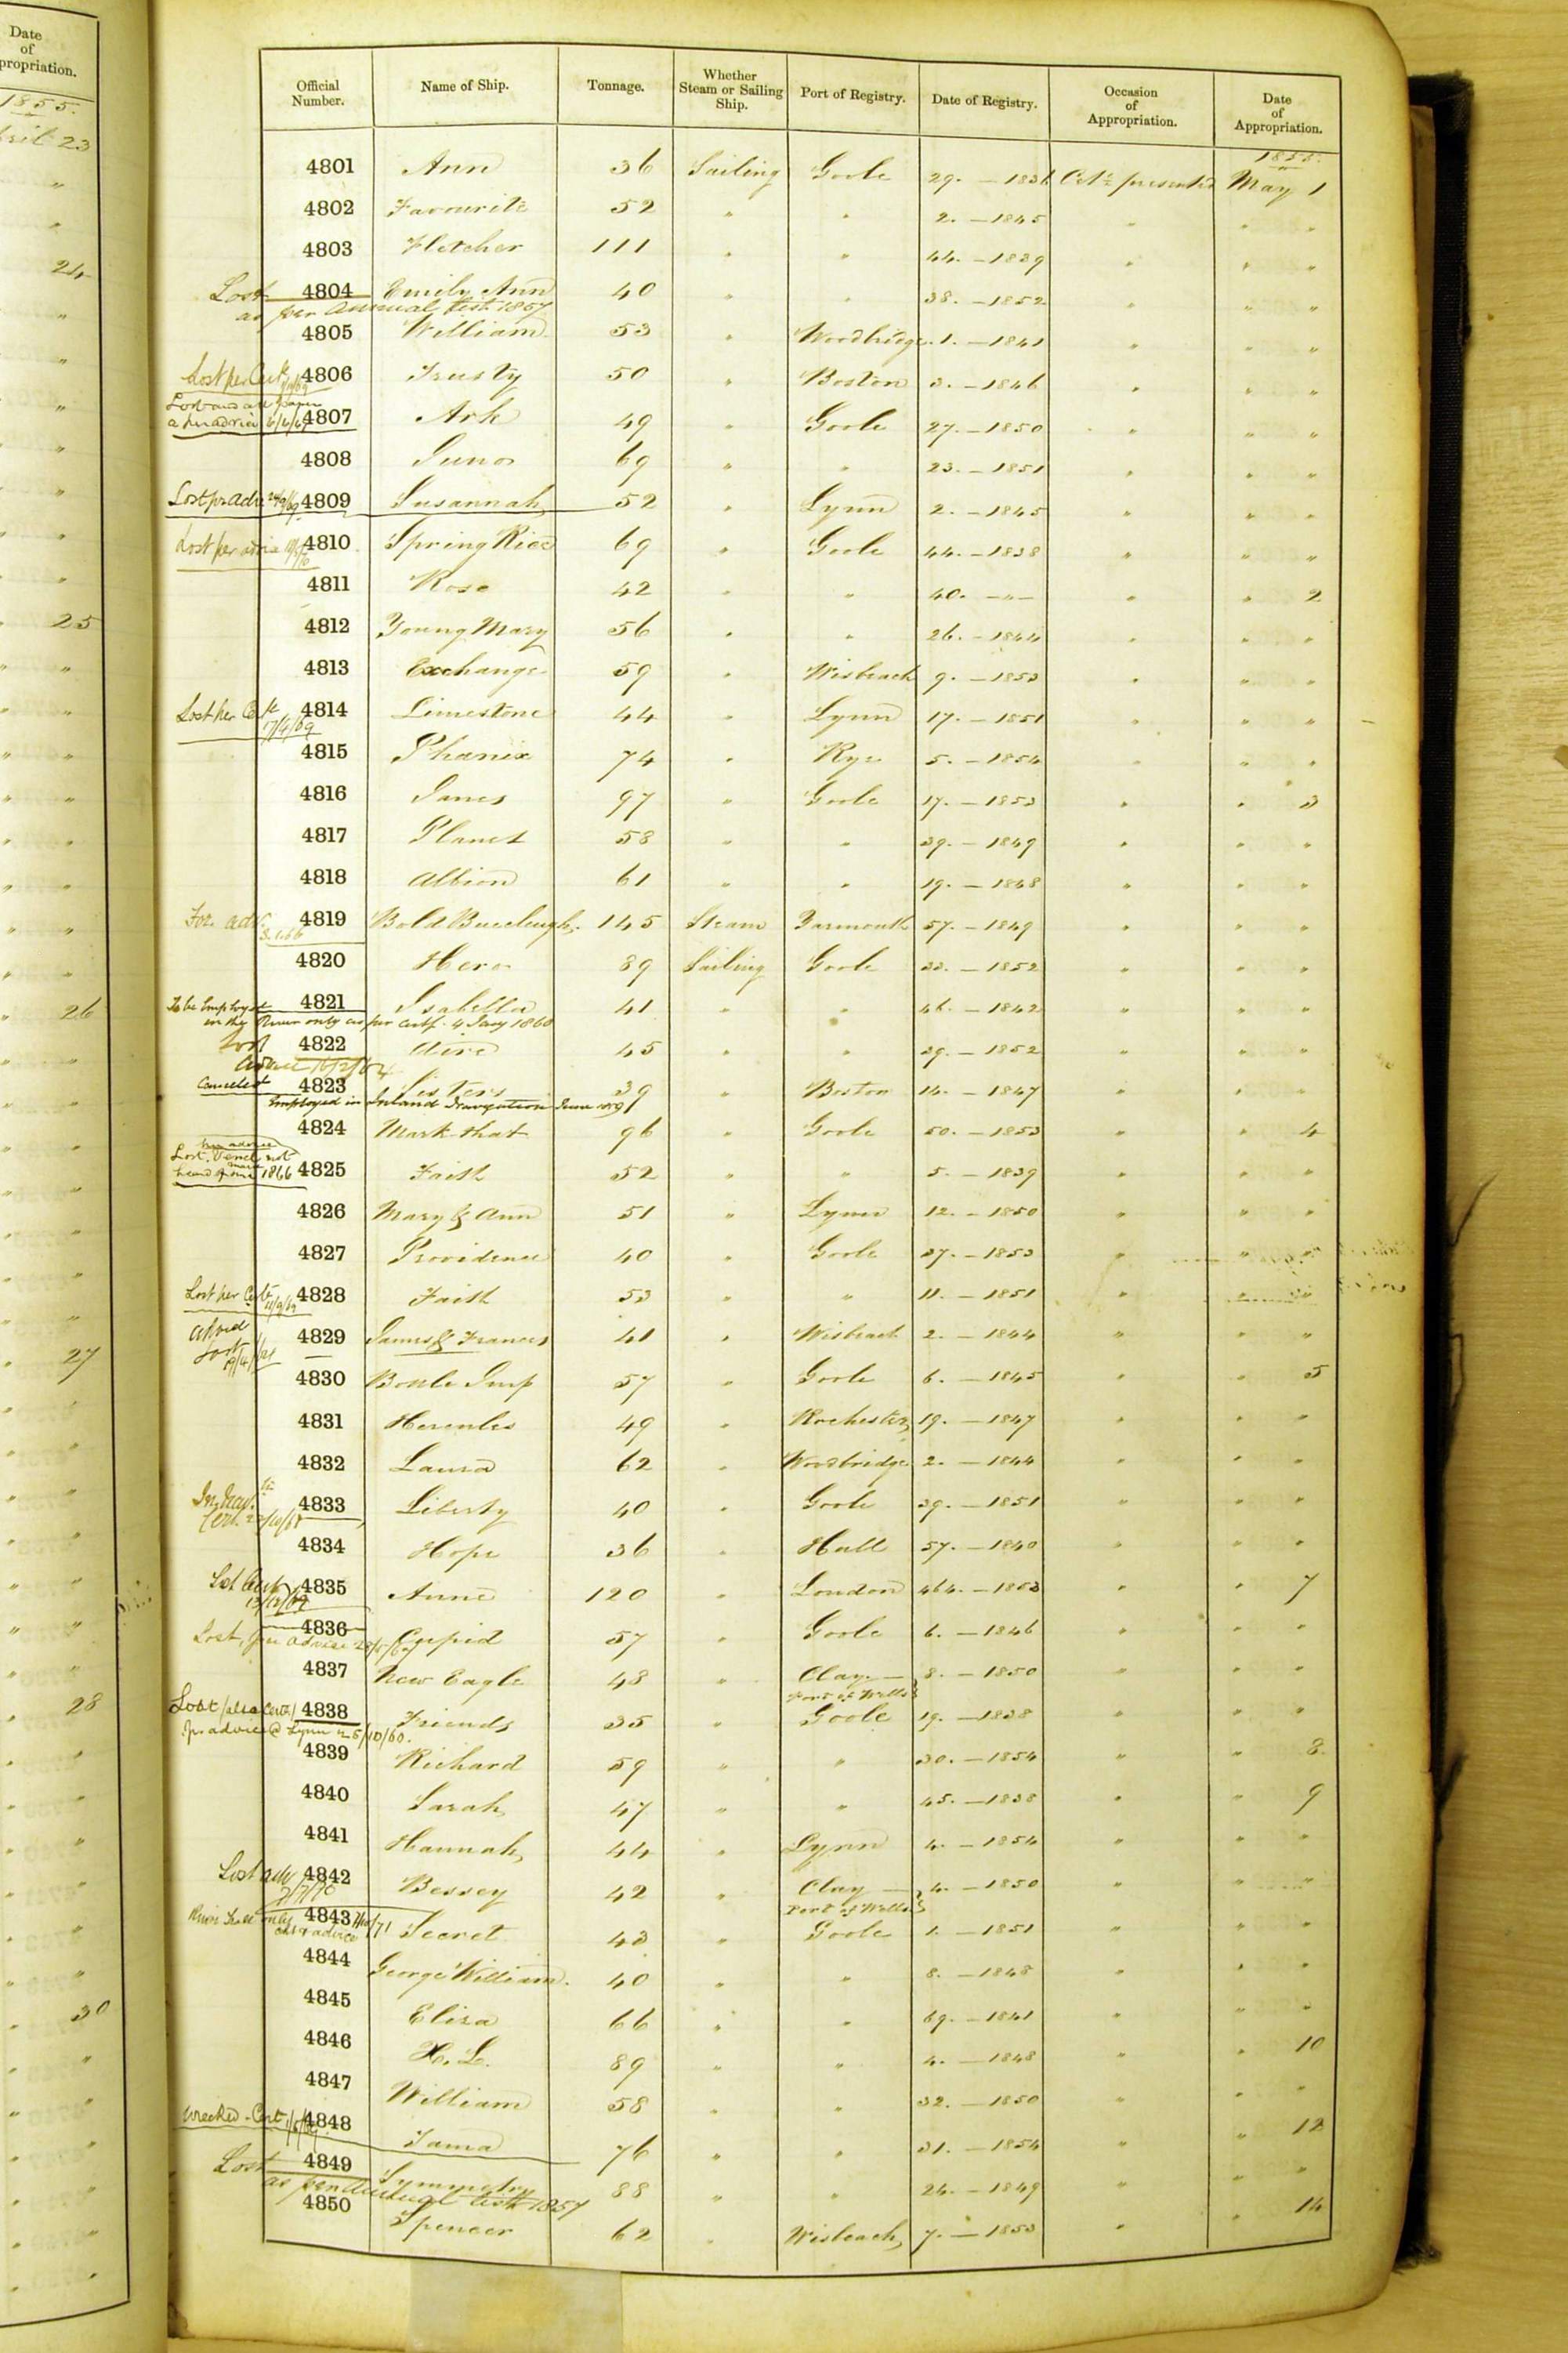 Date
of
propriation.
1855.
April 23
24
25
26
27
28
30
Official Number. Name of Ship. Tonnage. Whether Steam or Sailing Ship. Port of Registry. Date of Registry. Occasion of Appropriation. Date of Appropriation.
1855.
4801 Ann 36 Sailing Goole 29. — 1836 Certe presented May 1
4802 Favourite 52 " " 2. — 1845 " " "
4803 Fletcher 111 " " 44. — 1839 " " "
Lost 4804 Emily Ann 40 " " 38. — 1852 " " "
as per Annual list 1857
4805 William 53 " Woodbridge 1. — 1841 " " "
Lost per Cert. 4806 Trusty 50 " Boston 3. — 1846 " " "
Lost and
4807 Ark 49 " Goole 27. — 1850 " " "
4808 Juno 69 " " 23. — 1851 " " "
Lost pr Adv. 4809 Susannah 52 " Lynn 2. — 1845 " " "
Lost per advice 4810 Spring Rice 69 " Goole 44. — 1838 " " "
4811 Rose 42 " " 40. — " — " " 2
4812 Young Mary 56 " " 26. — 1844 " " "
4813 Exchange 59 " Wisbeach 9. — 1853 " " "
Lost per Cert. 4814 Limestone 44 " Lynn 17. — 1851 " " "
17/9/69
4815 Phœnix 74 " Rye 5. — 1854 " " "
4816 Janes 97 " Goole 17. — 1853 " " 3
4817 Planet 58 " " 39. — 1849 " " "
4818 Albion 61 " " 19. — 1848 " " "
For. adv. 4819 Bold Buccleugh. 145 Steam Yarmouth 57. — 1849 " " "
4820 Hero 89 Sailing Goole 33. — 1852 " " "
To be Employed 4821 Isabella 41 " " 46. — 1842 " " "
in the River only as per certf. 4 Jany 1860
Lost 4822 Aire 45 " " 29. — 1852 " " "
advice 16/2/64
Canceled 4823 Sisters 39 " Boston 14. — 1847 " " "
Employed in Inland Navigation June 1859
4824 Mark that 96 " Goole 50. — 1853 " " 4
per advice
Lost. Vessel not
heard of since 1866 4825 Faith 52 " " 5. — 1839 " " "
4826 Mary & Ann 51 " Lynn 12. — 1850 " " "
4827 Providence 40 " Goole 37. — 1853 " " "
Lost per Cert. 4828 Faith 53 " " 11. — 1851 " " "
4829 James & Frances 41 " Wisbeach 2. — 1844 " " "
Lost
4830 Bottle Imp 57 " Goole 6. — 1845 " " 5
4831 Hercules 49 " Rochester 19. — 1847 " " "
4832 Laura 62 " Woodbridge 2. — 1844 " " "
4833 Liberty 40 " Goole 39. — 1851 " " "
4834 Hope 36 " Hull 57. — 1840 " " "
Lost Cert. 4835 Anne 120 " London 464. — 1853 " " 7
13/12/69
4836 Cupid 57 " Goole 6. — 1846 " " "
Lost, per advice
4837 New Eagle 48 " Clay — 8. — 1850 " " "
Port of Wells
Lost 4838 Friends 35 " Goole 19. — 1838 " " "
pr advice @ Lynn 25/10/60.
4839 Richard 59 " " 30. — 1854 " " 8.
4840 Sarah 47 " " 45. — 1838 " " 9
4841 Hannah 44 " Lynn 4. — 1854 " " "
Lost adv 4842 Bessey 42 " Clay — 4. — 1850 " " "
2/7/70
Port of Wells
only 4843 Secret 43 " Goole 1. — 1851 " " "
advice
4844 George William. 40 " " 8. — 1848 " " "
4845 Eliza 66 " " 69. — 1841 " " "
4846 H. L. 89 " " 4. — 1848 " " 10
4847 William 58 " " 32. — 1850 " " "
Wrecked - Cert. 4848 Tama 76 " " 31. — 1854 " " 12
Lost 4849 Symmetry 88 " " 24. — 1849 " " "
as per Annual list 1857
4850 Spencer 62 " Wisbeach 7. — 1853 " " 14